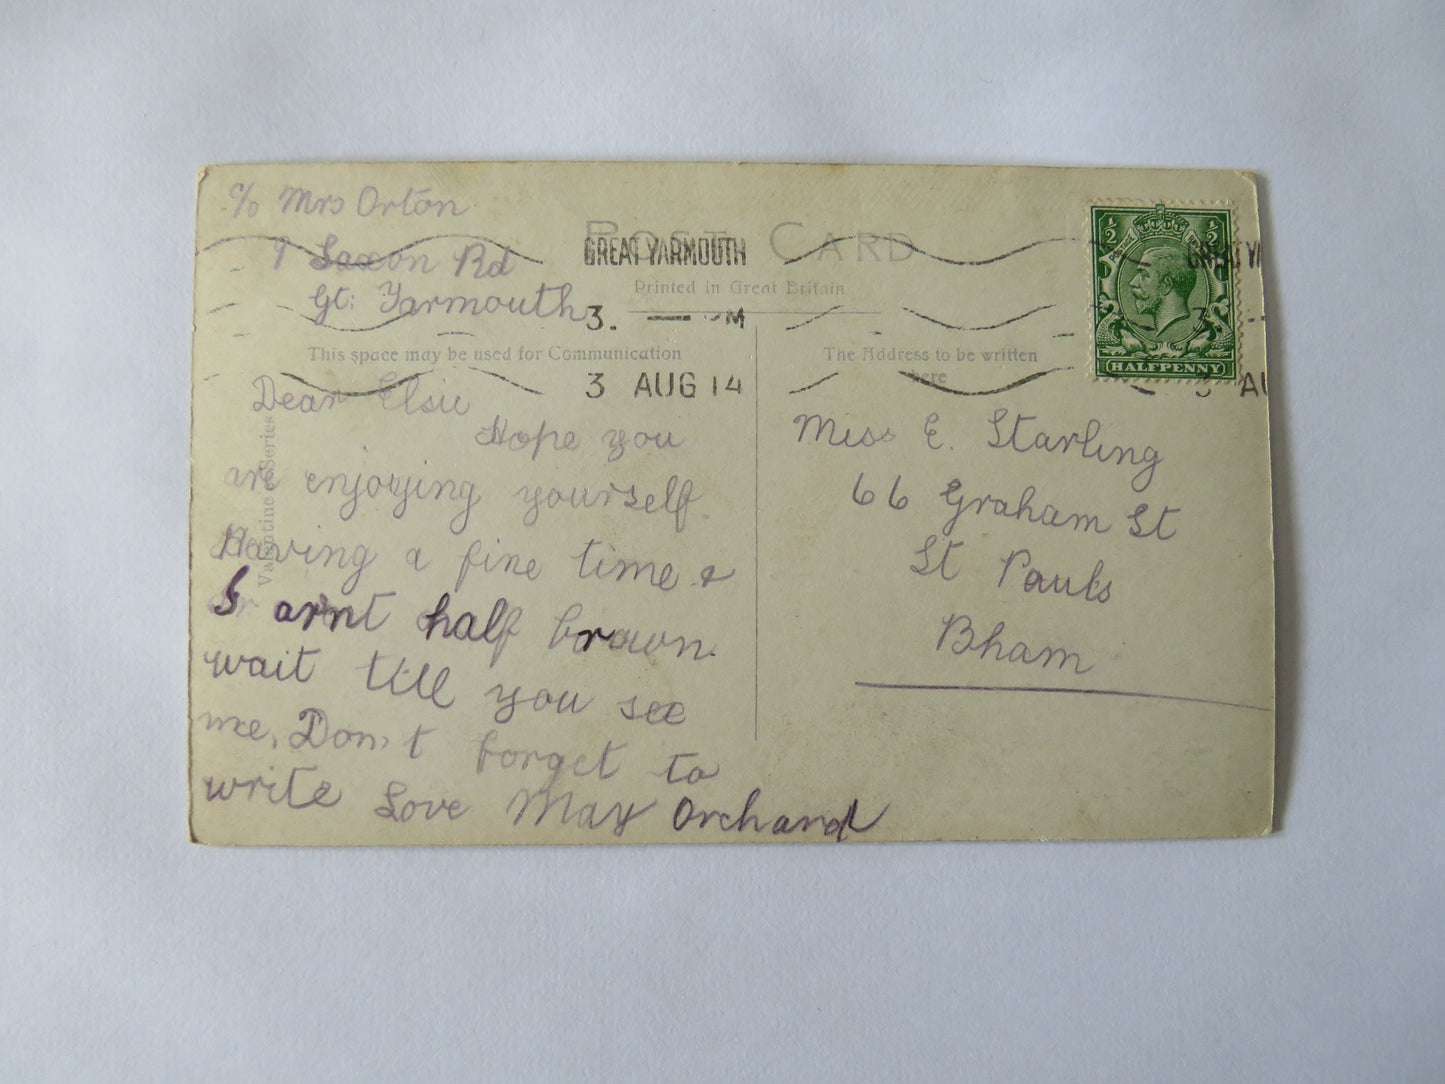 c/o Mrs Orton
9 Saxon Rd
Gt: Yarmouth
POST CARD
GREAT YARMOUTH
Printed in Great Britain
3. M
3 AUG 14
This space may be used for Communication
The Address to be written
here
½ ½
POSTAGE
HALFPENNY
GREAT YA
3
3 AU
Valentine's Series
Dear Elsie
Hope you
are enjoying yourself.
Having a fine time &
I arnt half brown.
wait till you see
me, Don't forget to
write Love May Orchard
Miss E. Starling
66 Graham St
St Pauls
Bham